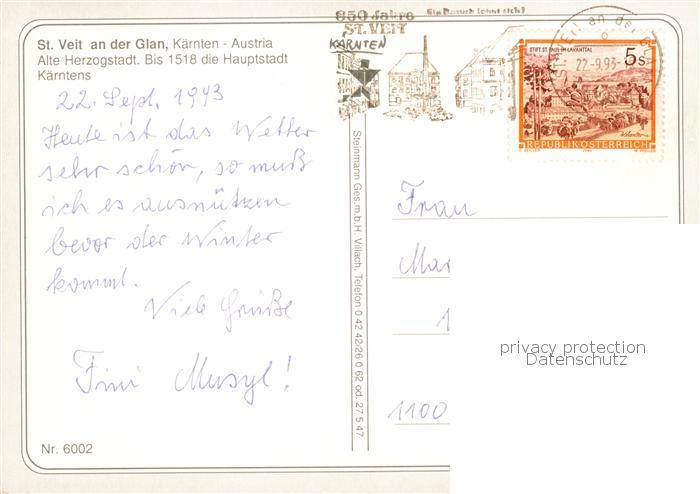 850 Jahre
Ein Besuch lohnt sich!
ST. VEIT
KÄRNTEN
22-9.93
STIFT ST. PAUL IM LAVANTTAL
5s
REPUBLIK ÖSTERREICH
St. Veit an der Glan, Kärnten - Austria
Alte Herzogstadt. Bis 1518 die Hauptstadt
Kärntens
22. Sept. 1993
Heute ist das Wetter
sehr schön, so muß
ich es ausnützen
bevor der Winter
kommt.
Viele Grüße
Fini Musyl!
Nr. 6002
Steinmann Ges.m.b.H. Villach, Telefon 0 42 42/26 0 62 od. 27 5 47
Frau
Mar
1
1100
privacy protection
Datenschutz